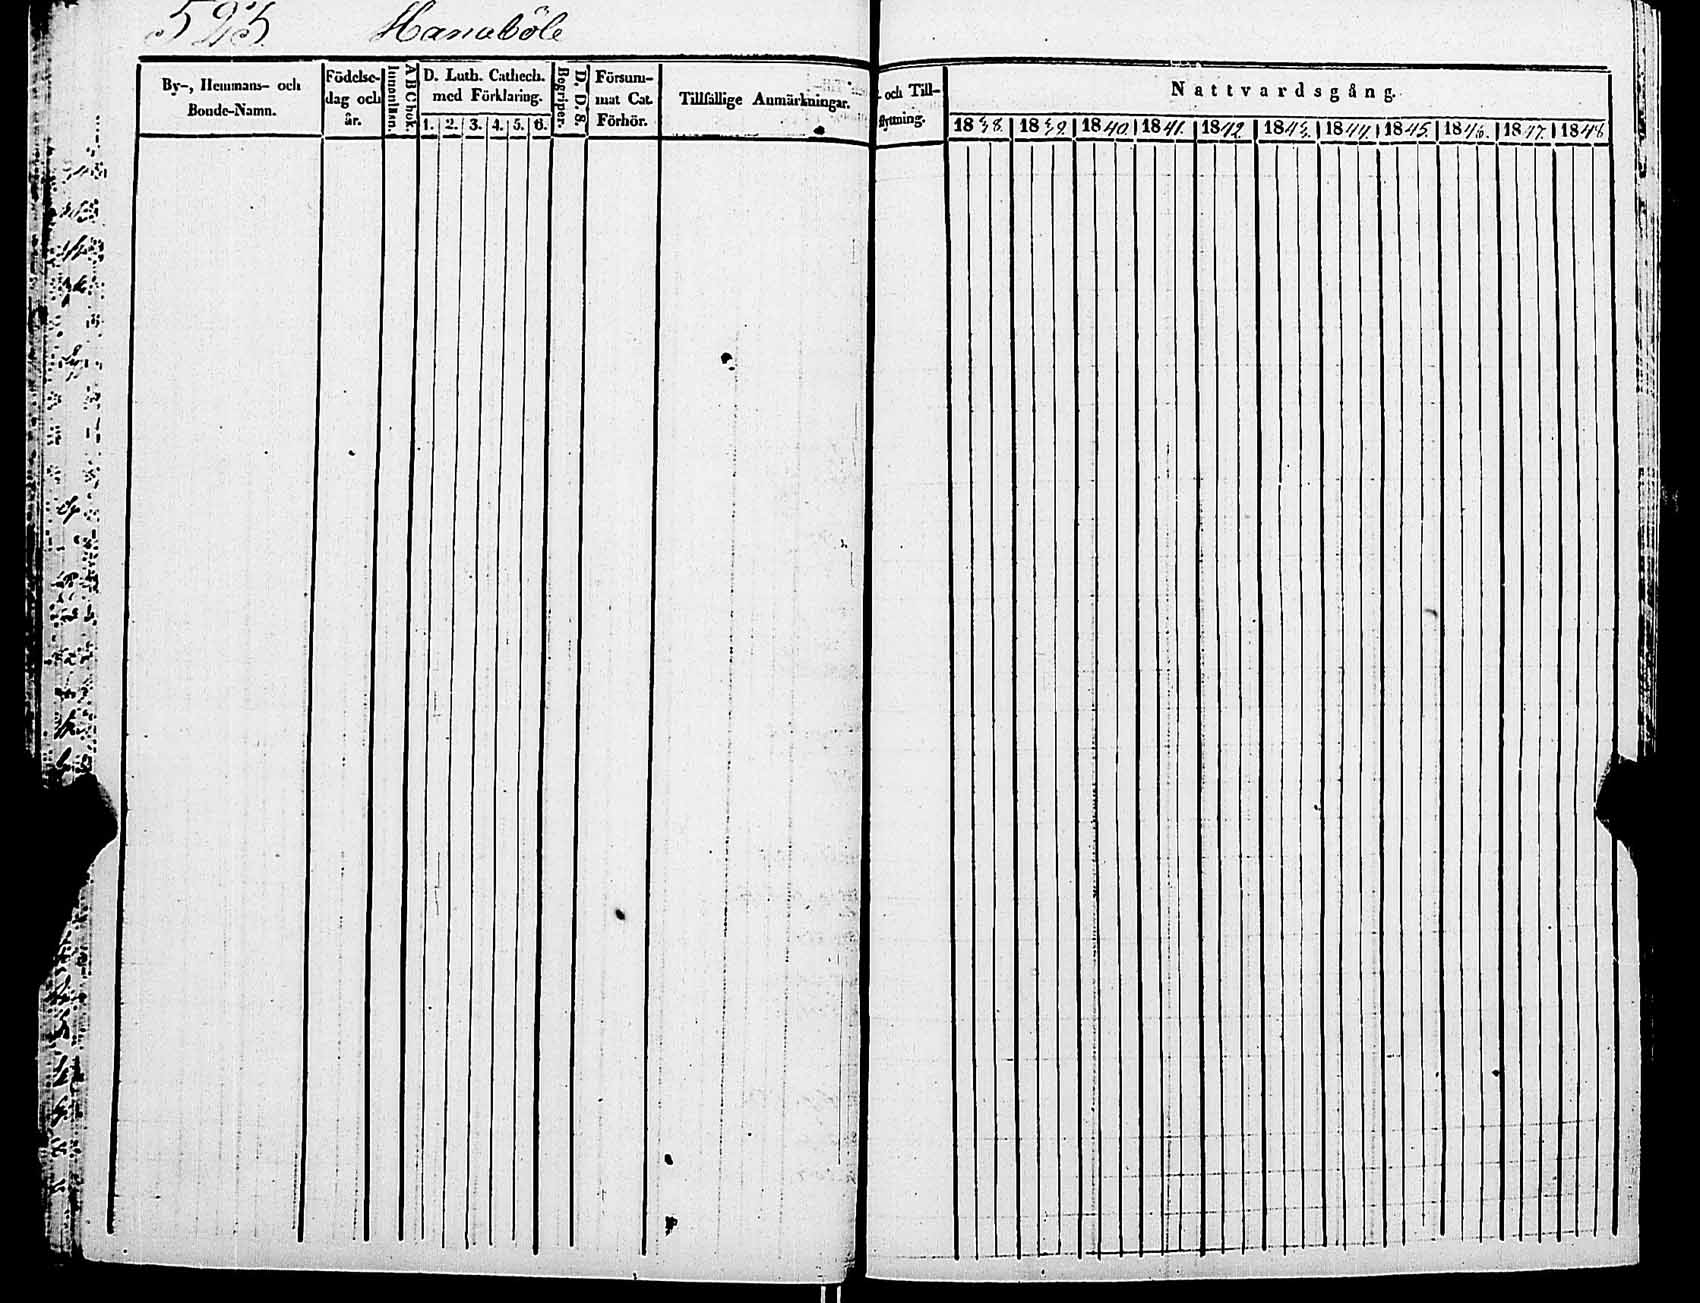 523. Hanaböle
By-, Hemmans- och
Bonde-Namn.
Födelse-
dag och
år.
Innanläsn.
ABCbok.
D. Luth. Cathech.
med Förklaring.
1. 2. 3. 4. 5. 6.
D. D. S.
Begriper.
Försum-
mat Cat.
Förhör.
Tillfällige Anmärkningar.
och Till-
flyttning.
Nattvardsgång.
1838. 1839. 1840. 1841. 1842 1843. 1844. 1845. 1846. 1847. 1848